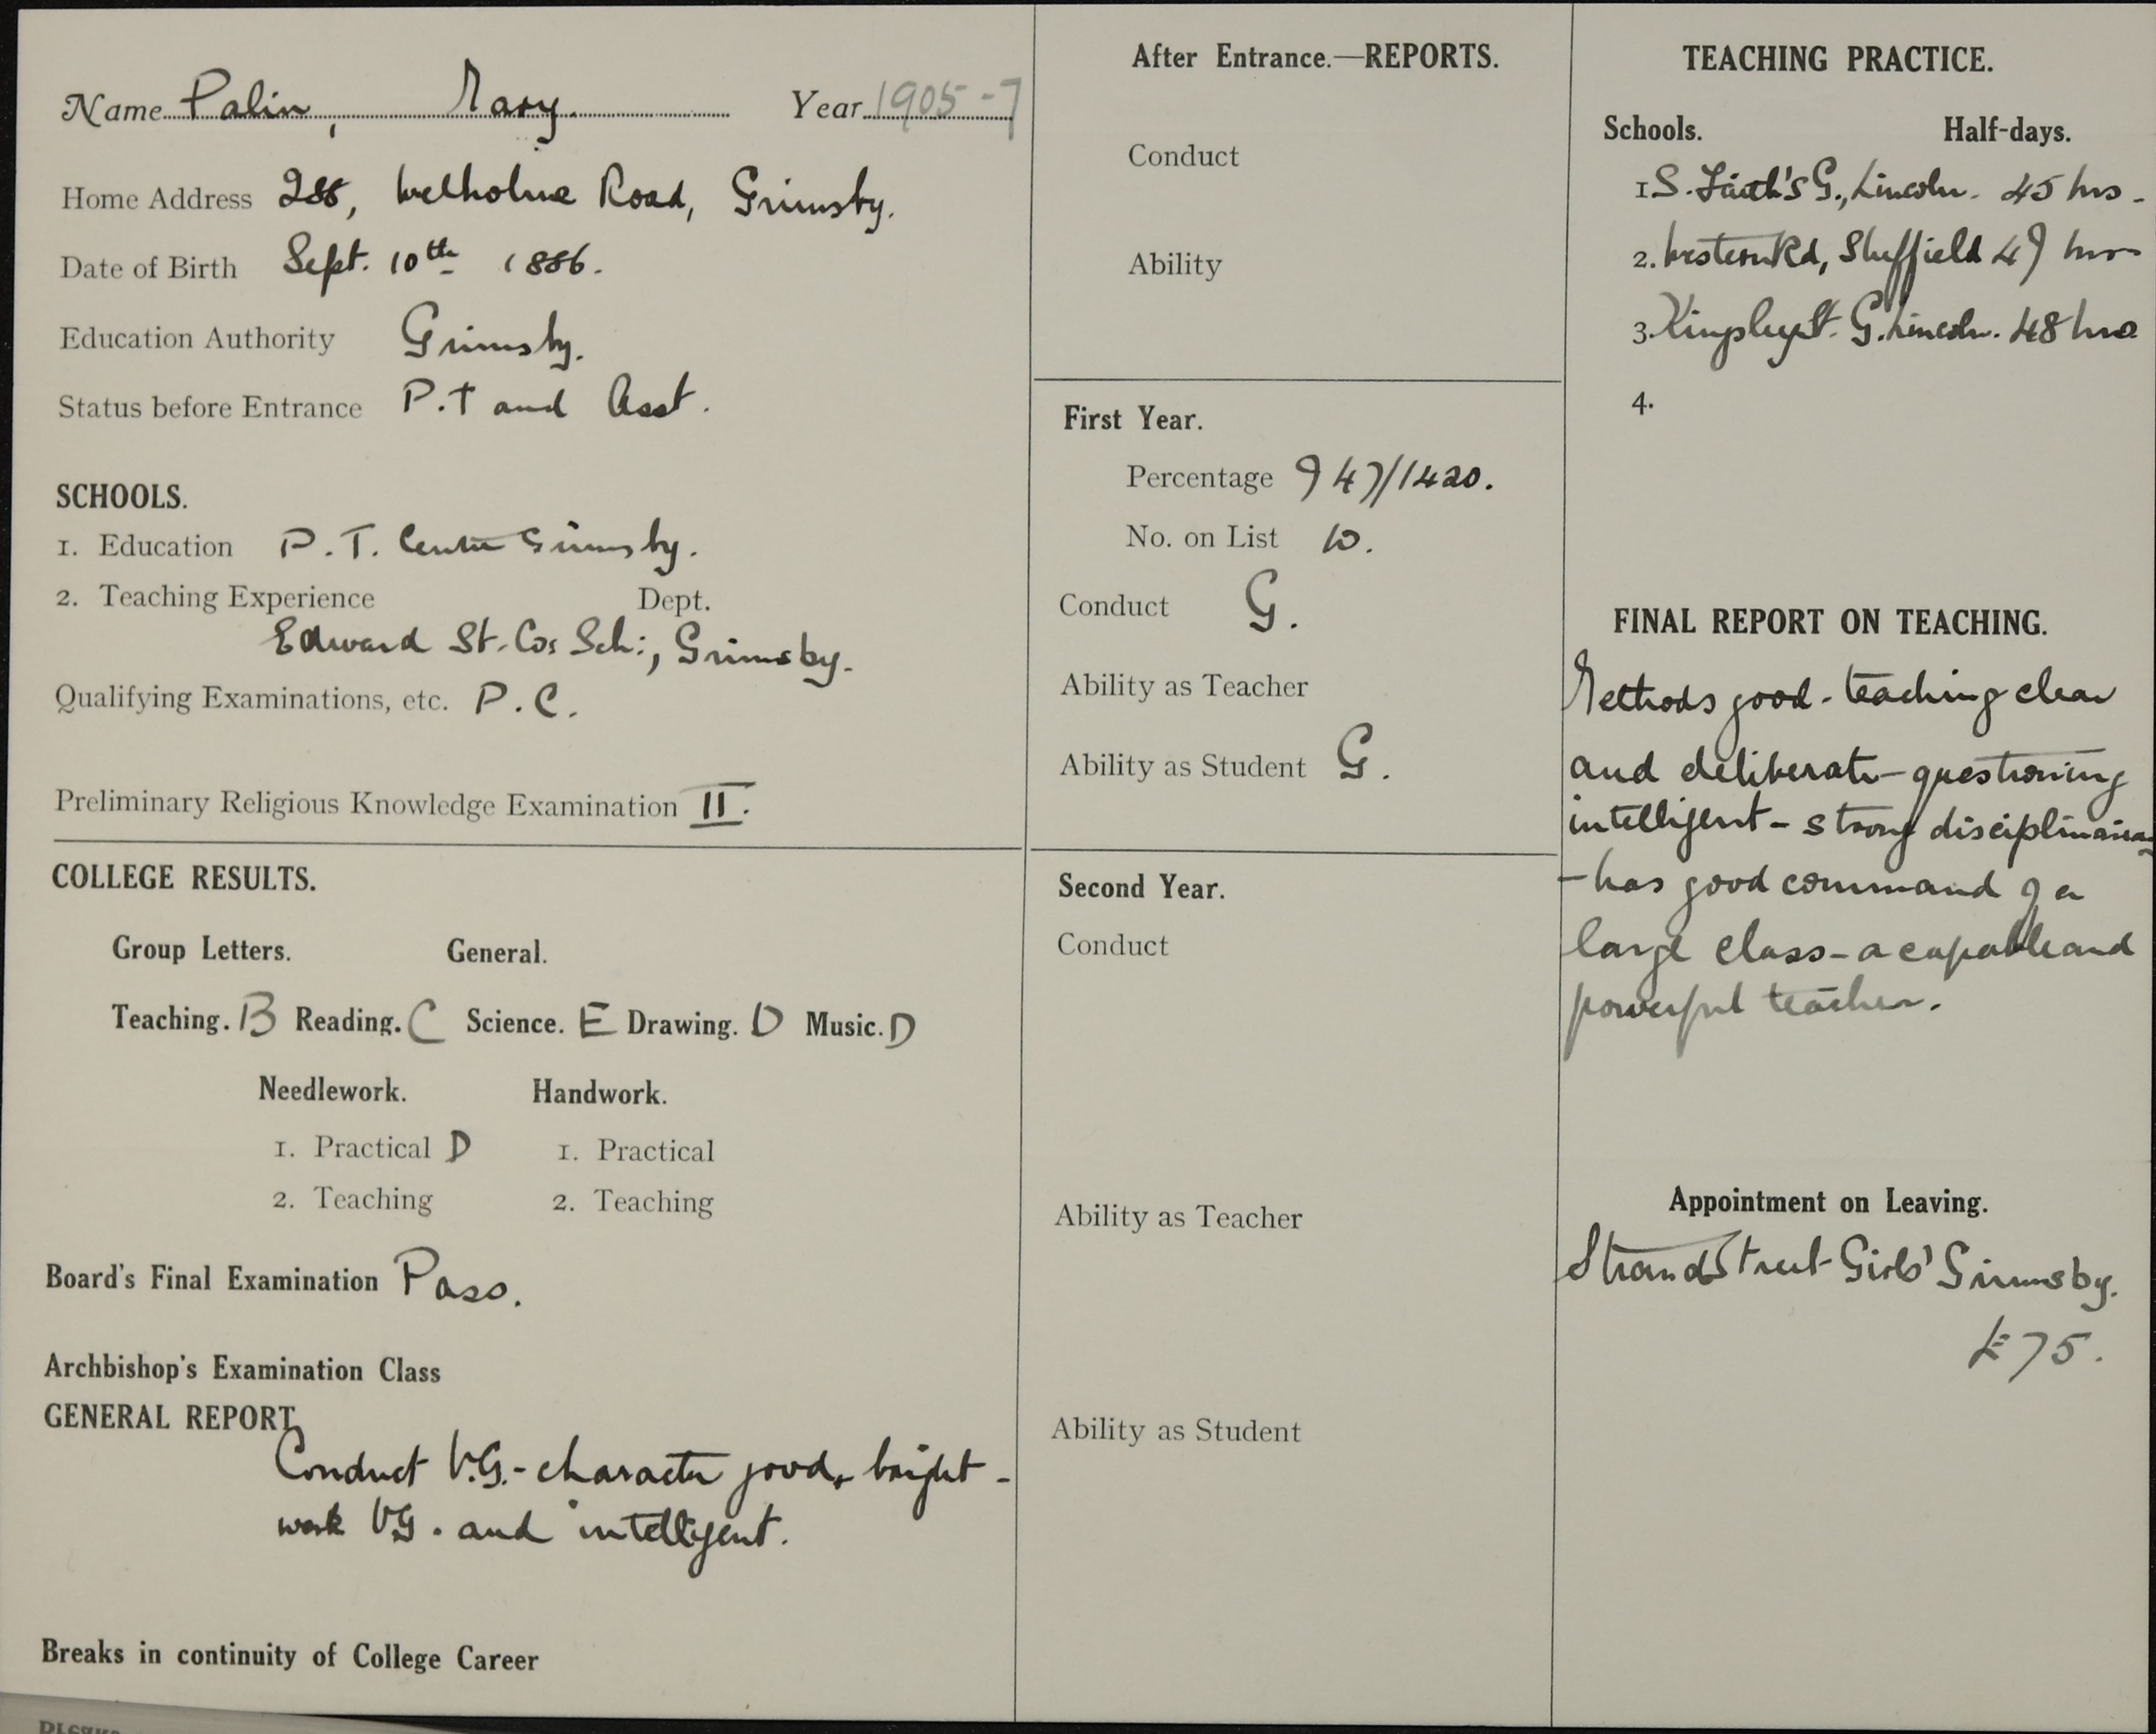 Name Palin, Mary. Year 1905-7
Home Address 288, Welholme Road, Grimsby.
Date of Birth Sept. 10th 1886.
Education Authority Grimsby.
Status before Entrance P.T and Asst.
SCHOOLS.
1. Education P.T. Centre Grimsby.
2. Teaching Experience Dept.
Edward St. Co: Sch:, Grimsby.
Qualifying Examinations, etc. P.C.
Preliminary Religious Knowledge Examination II.
COLLEGE RESULTS.
Group Letters. General.
Teaching. B Reading. C Science. E Drawing. D Music. D
Needlework. Handwork.
1. Practical D 1. Practical
2. Teaching 2. Teaching
Board's Final Examination Pass.
Archbishop's Examination Class
GENERAL REPORT
Conduct V.G. - character good, bright -
work VG. and intelligent.
Breaks in continuity of College Career
After Entrance.—REPORTS.
Conduct
Ability
First Year.
Percentage 947/1420.
No. on List 10.
Conduct G.
Ability as Teacher
Ability as Student G.
Second Year.
Conduct
Ability as Teacher
Ability as Student
TEACHING PRACTICE.
Schools. Half-days.
1 S. Faith's G., Lincoln. 45 hrs.
2. Western Rd, Sheffield 47 hrs
3. Kingsley St. G. Lincoln. 48 hrs
4.
FINAL REPORT ON TEACHING.
Methods good - teaching clear
and deliberate - questioning
intelligent - strong disciplinarian
- has good command of a
large class - a capable and
powerful teacher.
Appointment on Leaving.
Strand Street Girls' Grimsby.
£75.